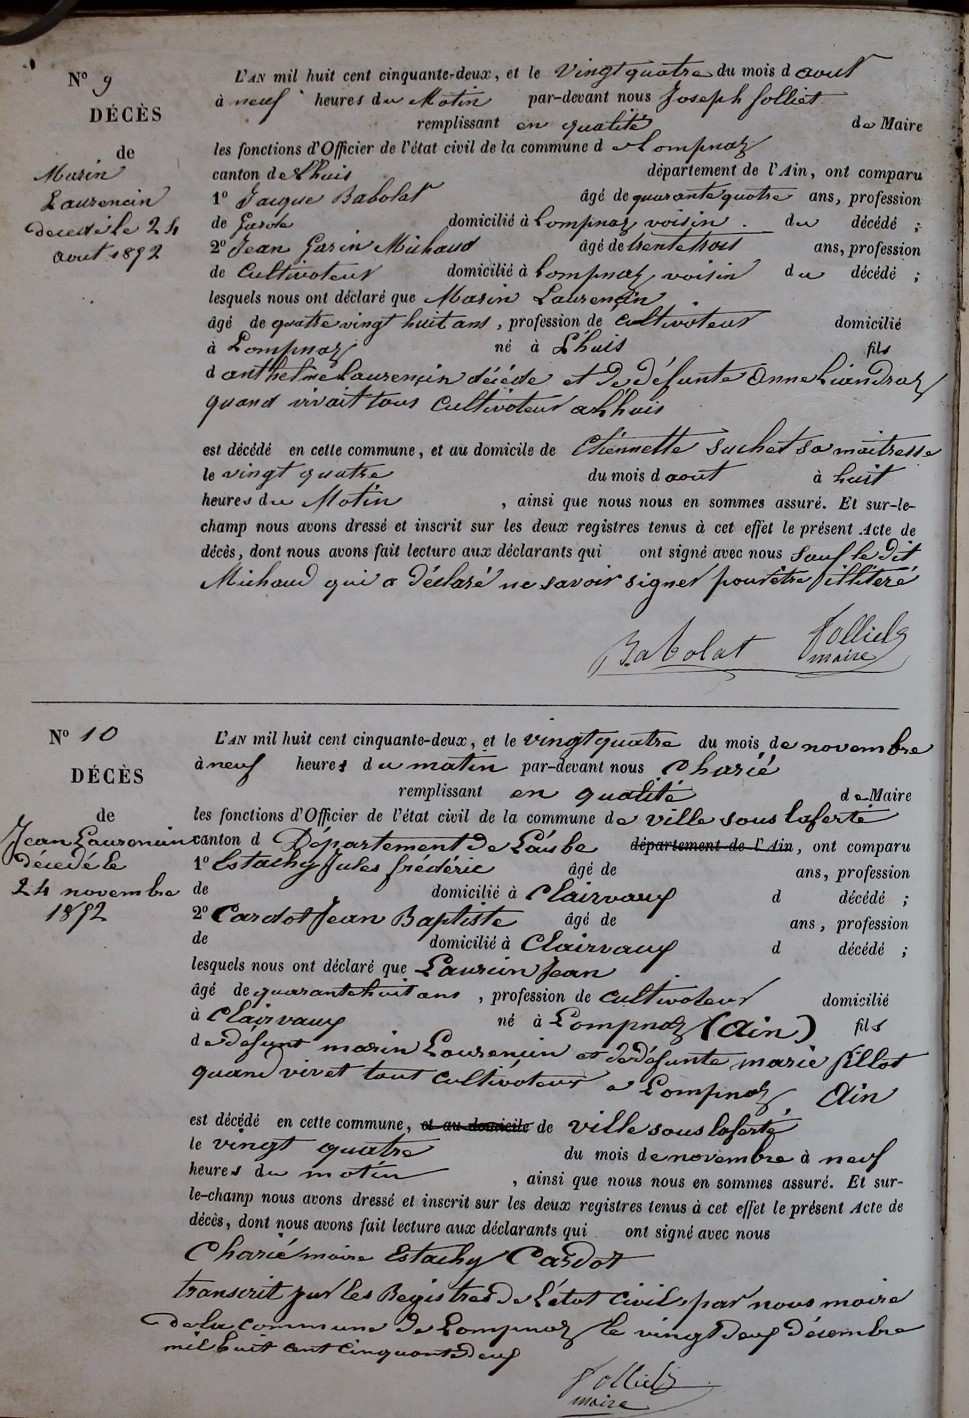 N° 9
DÉCÈS
de
Marin
Laurencin
décédé le 24
aout 1852
L'AN mil huit cent cinquante-deux, et le vingt quatre du mois d aout
à neuf heures du Matin par-devant nous Joseph folliet
remplissant en qualité de Maire
les fonctions d'Officier de l'état civil de la commune d e Lompnaz
canton de Lhuis département de l'Ain, ont comparu
1° Jacque Babolat âgé de quarante quatre ans, profession
de Garde domicilié à Lompnaz voisin du décédé ;
2° Jean Garin Michaud âgé de trente trois ans, profession
de Cultivateur domicilié à Lompnaz voisin du décédé ;
lesquels nous ont déclaré que Marin Laurençin
âgé de quatre vingt huit ans, profession de cultivateur domicilié
à Lompnaz né à Lhuis fils
d anthelme Laurençin décédé et de défunte Anne Liandraz
quand vivait tous Cultivateur a Lhuis
est décédé en cette commune, et au domicile de Etiennette Suchet sa maitresse
le vingt quatre du mois d aout à huit
heures du Matin , ainsi que nous nous en sommes assuré. Et sur-le-
champ nous avons dressé et inscrit sur les deux registres tenus à cet effet le présent Acte de
décès, dont nous avons fait lecture aux déclarants qui ont signé avec nous sauf le dit
Michaud qui a déclaré ne savoir signer pour être illitéré
Babolat folliet
maire
N° 10
DÉCÈS
de
Jean Laurencin
décédé le
24 novembre
1852
L'AN mil huit cent cinquante-deux, et le vingt quatre du mois de novembre
à neuf heures du matin par-devant nous Charié
remplissant en qualité de Maire
les fonctions d'Officier de l'état civil de la commune de ville sous laferté
canton d Département de L'aube département de l'Ain, ont comparu
1° Estachy Jules frédéric âgé de ans, profession
de domicilié à Clairvaux d décédé ;
2° Cardot Jean Baptiste âgé de ans, profession
de domicilié à Clairvaux d décédé ;
lesquels nous ont déclaré que Laurcin Jean
âgé de quarante huit ans, profession de cultivateur domicilié
à Clairvaux né à Lompnaz (Ain) fils
de défunt marin Laurencin et de défunte marie fillot
quand vivet tout cultivateur a Lompnaz Ain
est décédé en cette commune, et au domicile de ville sous laferté
le vingt quatre du mois de novembre à neuf
heures du matin , ainsi que nous nous en sommes assuré. Et sur-
le-champ nous avons dressé et inscrit sur les deux registres tenus à cet effet le présent Acte de
décès, dont nous avons fait lecture aux déclarants qui ont signé avec nous
Charié maire Estachy Cardot
transcrit sur les Registres de L'état civil par nous maire
de la commune de Lompnaz le vingt deux décembre
mil huit cent cinquante deux
folliet
maire